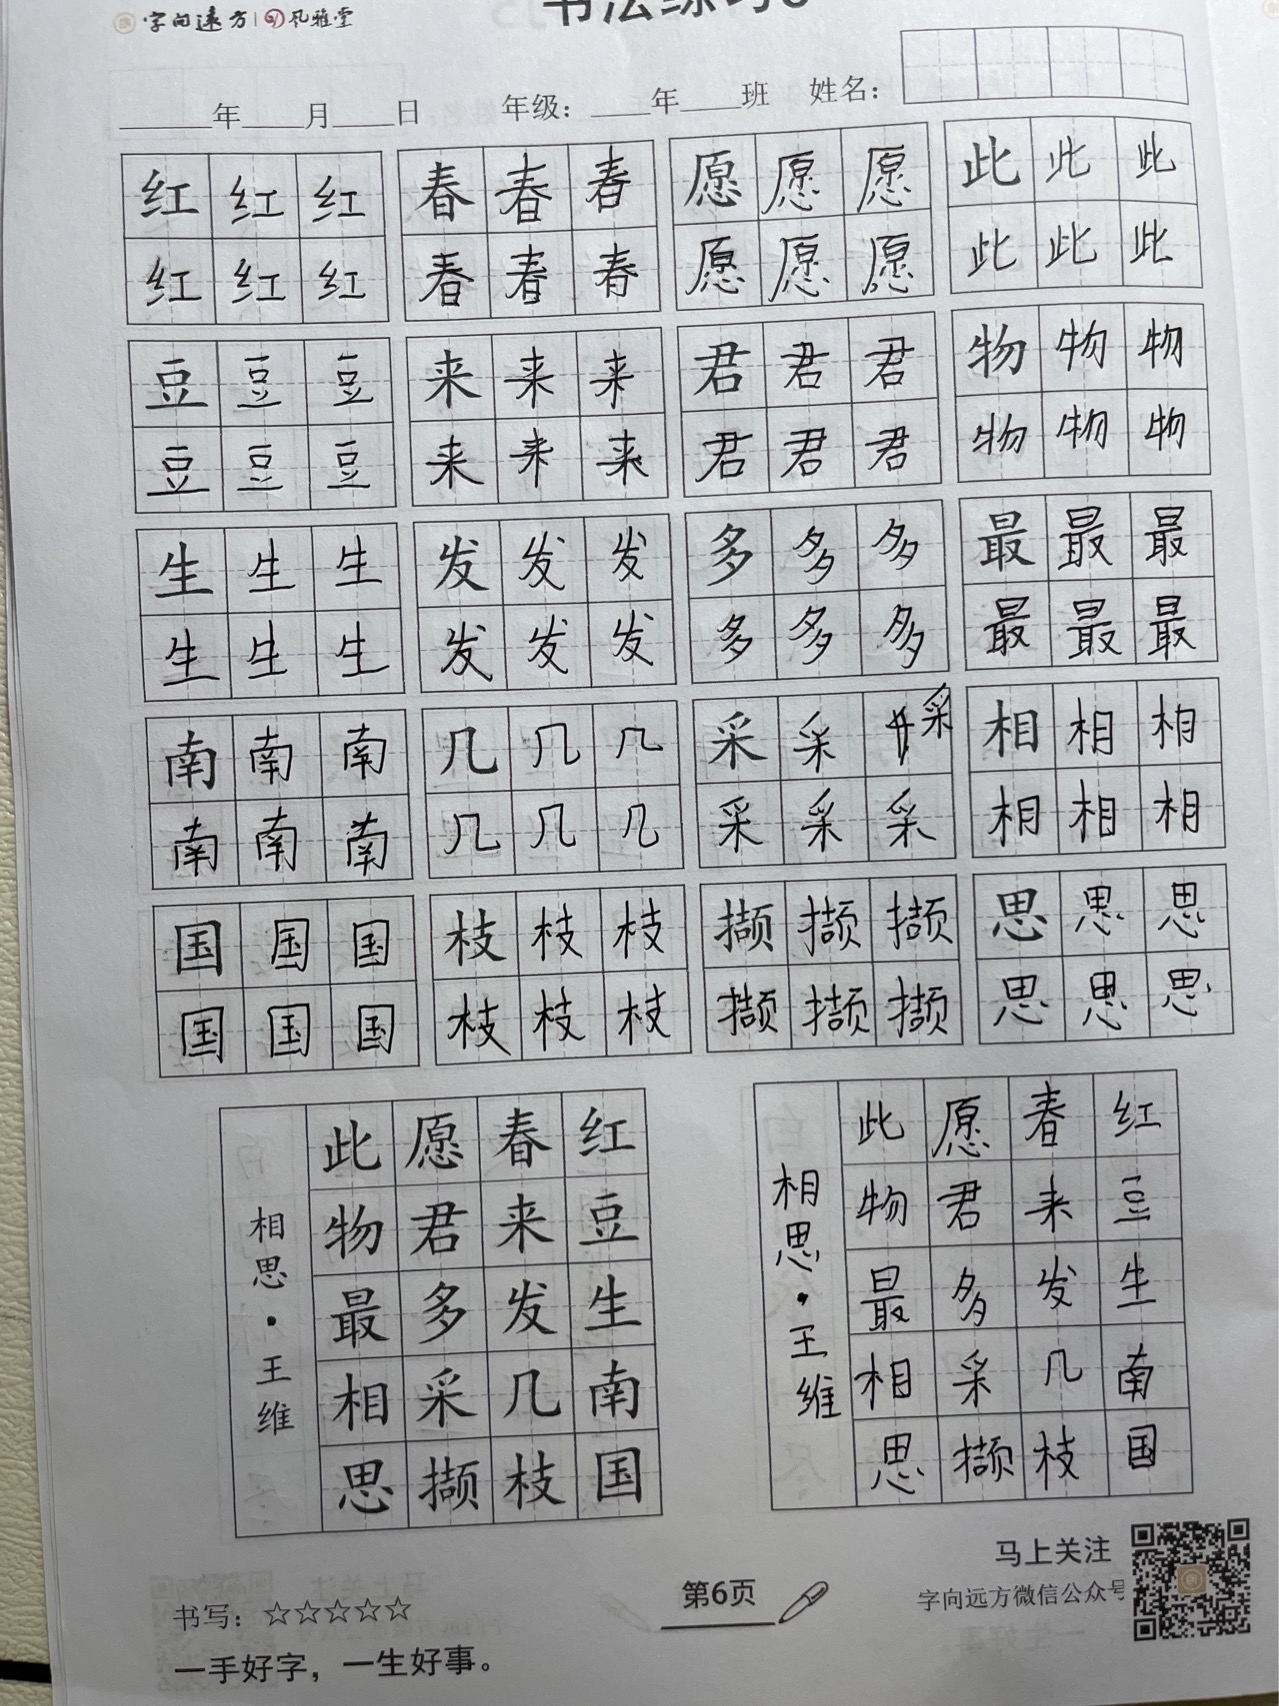 字向远方 | 风雅堂
书法练习6
____年____月____日 年级：____年____班 姓名：
红 红 红 春 春 春 愿 愿 愿 此 此 此
红 红 红 春 春 春 愿 愿 愿 此 此 此
豆 豆 豆 来 来 来 君 君 君 物 物 物
豆 豆 豆 来 来 来 君 君 君 物 物 物
生 生 生 发 发 发 多 多 多 最 最 最
生 生 生 发 发 发 多 多 多 最 最 最
南 南 南 几 几 几 采 采 采 相 相 相
南 南 南 几 几 几 采 采 采 相 相 相
国 国 国 枝 枝 枝 撷 撷 撷 思 思 思
国 国 国 枝 枝 枝 撷 撷 撷 思 思 思
红豆生南国
春来发几枝
愿君多采撷
此物最相思
相思·王维
红豆生南国
春来发几枝
愿君多采撷
此物最相思
相思·王维
马上关注
字向远方微信公众号
第6页
书写：☆☆☆☆☆
一手好字，一生好事。